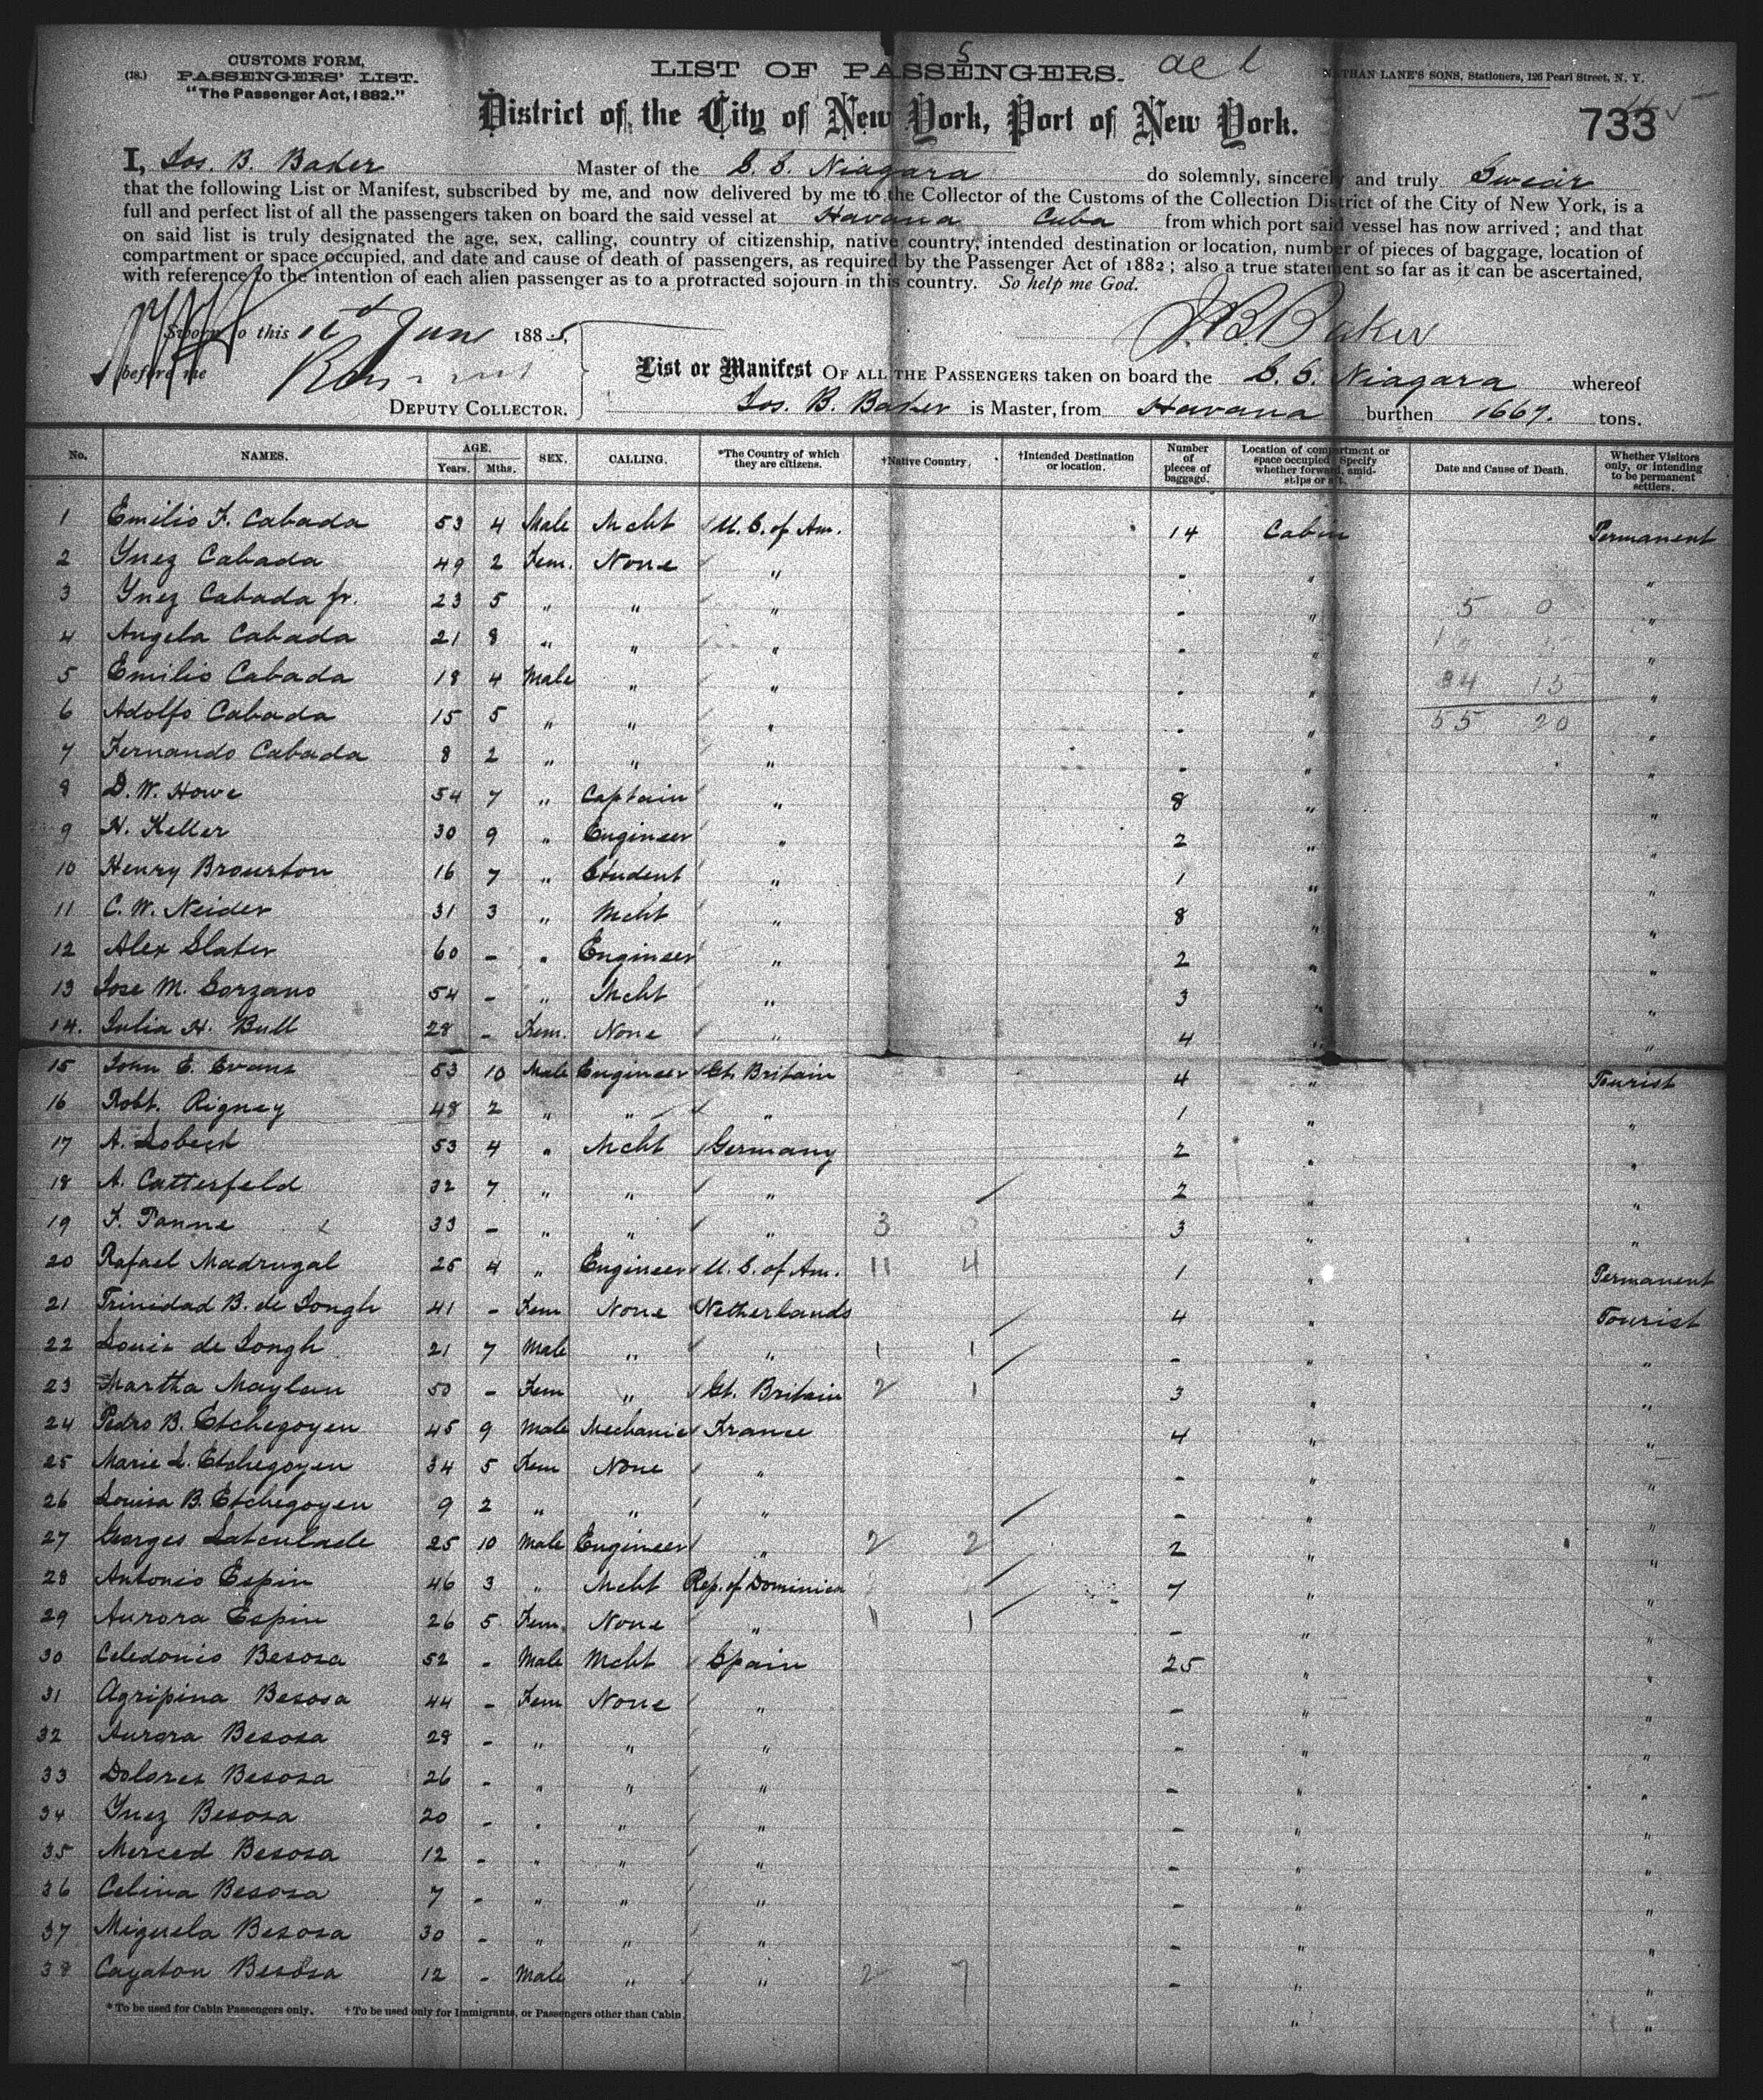 CUSTOMS FORM,
(18.) PASSENGERS' LIST.
"The Passenger Act, 1882."
5
LIST OF PASSENGERS.
NATHAN LANE'S SONS, Stationers, 126 Pearl Street, N. Y.
District of the City of New York, Port of New York.
733
I, Jos. B. Baker Master of the S. S. Niagara do solemnly, sincerely and truly Swear
that the following List or Manifest, subscribed by me, and now delivered by me to the Collector of the Customs of the Collection District of the City of New York, is a
full and perfect list of all the passengers taken on board the said vessel at Havana Cuba from which port said vessel has now arrived; and that
on said list is truly designated the age, sex, calling, country of citizenship, native country, intended destination or location, number of pieces of baggage, location of
compartment or space occupied, and date and cause of death of passengers, as required by the Passenger Act of 1882; also a true statement so far as it can be ascertained,
with reference to the intention of each alien passenger as to a protracted sojourn in this country. So help me God.
Sworn to this June 1885,
J. B. Baker
before me
DEPUTY COLLECTOR.
List or Manifest OF ALL THE PASSENGERS taken on board the S. S. Niagara whereof
Jos. B. Baker is Master, from Havana burthen 1667. tons.
No. NAMES. AGE. Years. Mths. SEX. CALLING. *The Country of which they are citizens. †Native Country. †Intended Destination or location. Number of pieces of baggage. Location of compartment or space occupied. Specify whether forward, amidships or aft. Date and Cause of Death. Whether Visitors only, or intending to be permanent settlers.
1 Emilio F. Cabada 53 4 Male Mcht U. S. of Am. 14 Cabin Permanent
2 Ynez Cabada 49 2 Fem. None " - " "
3 Ynez Cabada jr. 23 5 " " " - " 5 0 "
4 Angela Cabada 21 8 " " " - " "
5 Emilio Cabada 18 4 Male " " - " 34 15 "
6 Adolfo Cabada 15 5 " " " - " 55 20 "
7 Fernando Cabada 8 2 " " " - " "
8 D. W. Howe 54 7 " Captain " 8 " "
9 H. Keller 30 9 " Engineer " 2 " "
10 Henry Brourton 16 7 " Student " 1 " "
11 C. W. Neider 31 3 " Mcht " 8 " "
12 Alex Slater 60 - " Engineer " 2 " "
13 Jose M. Gorzano 54 - " Mcht " 3 " "
14. Julia H. Bull 28 - Fem. None " 4 " "
15 John E. Evans 53 10 Male Engineer Gt. Britain 4 " Tourist
16 Robt. Rigney 48 2 " " " 1 " "
17 A. Lobeck 53 4 " Mcht Germany 2 " "
18 A. Catterfeld 32 7 " " " 2 " "
19 F. Panne 33 - " " " 3 3 " "
20 Rafael Madrugal 25 4 " Engineer U. S. of Am. 11 4 1 " Permanent
21 Trinidad B. de Jongh 41 - Fem None Netherlands 4 " Tourist
22 Louis de Jongh 21 7 Male " " 1 1 - " "
23 Martha Maylan 50 - Fem " Gt. Britain 2 1 3 " "
24 Pedro B. Etchegoyen 45 9 Male Mechanic France 4 " "
25 Marie L. Etchegoyen 34 5 Fem None " - " "
26 Louisa B. Etchegoyen 9 2 " " " - " "
27 Georges Latculade 25 10 Male Engineer " 2 2 2 " "
28 Antonio Espin 46 3 " Mcht Rep. of Dominica 7 " "
29 Aurora Espin 26 5 Fem. None " 1 - " "
30 Celedonio Besosa 52 - Male Mcht Spain 25 " "
31 Agripina Besosa 44 - Fem None " - " "
32 Aurora Besosa 28 - " " " - " "
33 Dolores Besosa 26 - " " " - " "
34 Ynez Besosa 20 - " " " - " "
35 Merced Besosa 12 - " " " - " "
36 Celina Besosa 7 - " " " - " "
37 Miguela Besosa 30 - " " " - " "
38 Cayaton Besosa 12 - Male " " 2 7 - " "
* To be used for Cabin Passengers only. † To be used only for Immigrants, or Passengers other than Cabin. " "